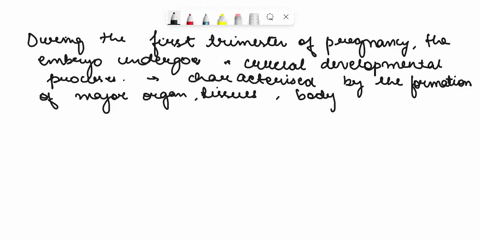 During the first trimester of pregnancy, the
embryo undergoes crucial developmental
processes. → characterised by the formation
of major organ, tissues, body